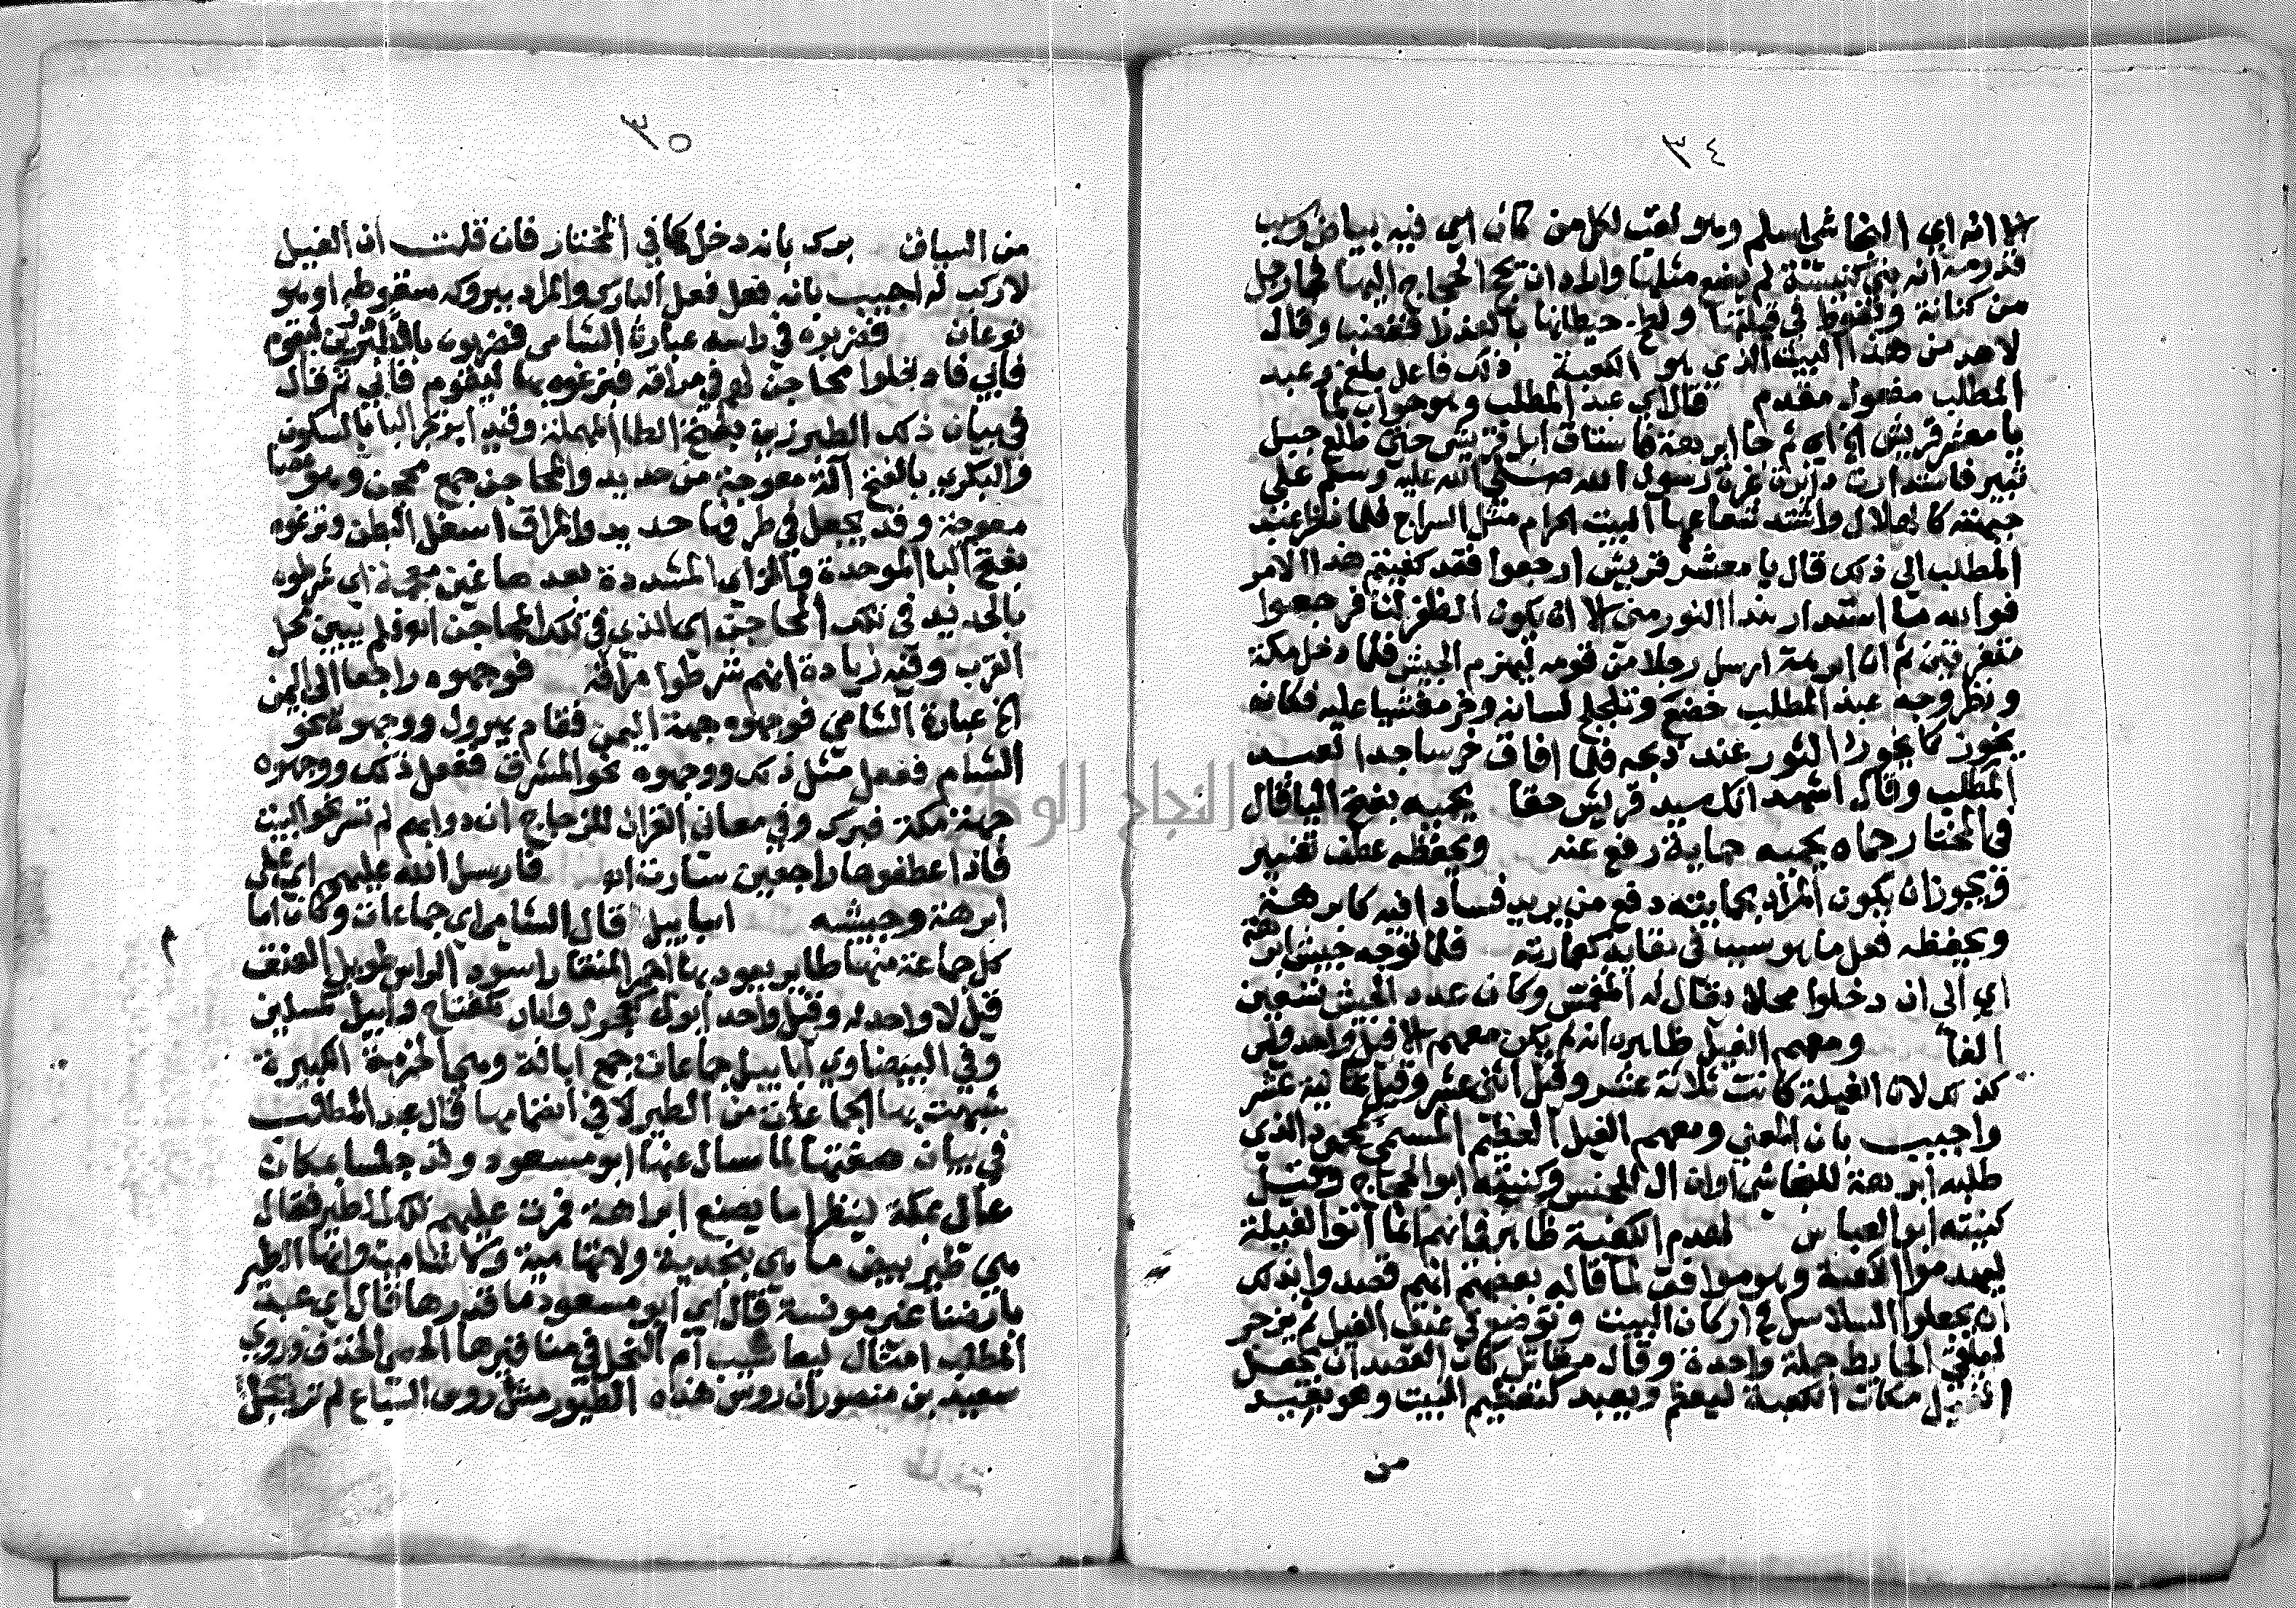 ٣٤
الا انه اي النجاشي اسلم وهو لقب لكل من كان اي فيه بياض
قذرومة انه بنى كنيسة لم يصنع مثلها واراد ان يحج الحجاج اليها فجا رجل
من كنانة وتغوط في قبلتها ولطخ حيطانها بالعذرة فغضب وقال
لاهدمن هذا البيت الذي هو الكعبة ذلك فاعل بلغ وعبد
المطلب مفعول مقدم قال اي عبد المطلب وهو جواب لما
يا معشر قريش الخ اي ثم جا ابرهة فاستاق ابل قريش حتى طلع جبل
ثبير فاستدارت دائرة غرة رسول الله صلى الله عليه وسلم على
جبهته كالهلال واشتد شعاعها البيت الحرام مثل السراج فلما نظر عبد
المطلب الى ذلك قال يا معشر قريش ارجعوا فقد كفيتم هذا الامر
فوالله ما استدار هذا النور مني الا ان يكون الظفر لنا فرجعوا
متفرقين ثم ان ابرهة ارسل رجلا من قومه ليهزم الجيش فلما دخل مكة
ونظر وجه عبد المطلب خضع وتلجلج لسانه وخر مغشيا عليه فكان
يخور كما يخور الثور عند ذبحه فلما افاق خر ساجدا لعبد
المطلب وقال اشهد انك سيد قريش حقا يحميه بفتح اليا قال
في المختار حماه يحميه حماية دفع عنه ويحفظه عطف تفسير
ويجوز ان يكون المراد بحمايته دفع من يريد فسادا فيه كابرهة
ويحفظه فعل ما هو سبب في بقايه كعمارته فلما توجه جيش ابرهة
اي الى ان دخلوا محلا يقال له المغمس وكان عدد الجيش ستين
الفا ومعهم الفيل ظاهره انه لم يكن معهم الا فيل واحد وليس
كذلك لان الفيلة كانت ثلاثة عشر وقيل اثني عشر وقيل ثمانية عشر
واجيب بان المعنى ومعهم الفيل العظيم المسمى محمود الذي
طلبه ابرهة للنجاشي او ان ال للجنس وكنيته ابو الحجاج وقيل
كنيته ابو العباس لهدم الكعبة ظاهر فانهم انما اتوا لفيلة
ليهدموا الكعبة وهو موافق لما قاله بعضهم انهم قصدوا بذلك
ان يجعلوا السلاسل في اركان البيت وتوضع في عنق الفيل ثم يزجر
ليلقي الحايط جملة واحدة وقال مقاتل كان القصد ان يجعل
الفيل مكان الكعبة ليعظم ويعبد كتعظيم البيت وهو بعيد
من
٣٥
من السياق برك بابه دخل كما في المختار فان قلت ان الفيل
لا يركب له اجيب بانه فعل فعل البارك والمراد ببروكه سقوطه او هو
نوعان فضربوه في راسه عبارة الشامي فضربوه بالطبرزين ليقوم
فابى فادخلوا محاجن لهم في مراقه فبزغوه بها ليقوم فابى ثم قال
في بيان ذلك الطبرزين بفتح الطا المهملة وقيد ابو بحر البا بالسكون
والبكري بالفتح آلة معوجة من حديد والمحاجن جمع محجن وهو عصا
معوجة وقد يجعل في طرفها حديد والمراق اسفل البطن وبزغوه
بفتح البا الموحدة والزاي المشددة بعدها غين معجمة اي شرطوه
بالحديد في تلك المحاجن اي الذي في تلك المحاجن اهو فلم يبين محل
الضرب وفيه زيادة انهم شرطوا مراقه فوجهوه راجعا الى اليمن
الخ عبارة الشامي فوجهوه جهة اليمن فقام يهرول ووجهوه نحو
الشام ففعل مثل ذلك ووجهوه نحو المشرق ففعل ذلك ووجهوه
جهة مكة فبرك وفي معاني القران للزجاج ان دوابهم لم تسر نحو البيت
فاذا عطفوها راجعين سارت اهو فارسل الله عليهم اي على
ابرهة وجيشه ابابيل قال الشامي اي جماعات وكان اما
كل جماعة منها طاير يعود بها احمر المنقار اسود الراس طويل العنق
قيل لا واحد له وقيل واحد ابول كعجول وابال كمفتاح وابيل كمسكين
وفي البيضاوي ابابيل جماعات جمع ابالة وهي الحزمة الكبيرة
شبهت بها الجماعات من الطير لا في انضمامها قال عبد المطلب
في بيان صفتها لما سال عنها ابو مسعود وقد جلسا بمكان
عال بمكة لينظرا ما يصنع ابراهة فمرت عليهم تلك الطير فقال
هي طير بيض ما هي بنجدية ولا تهامية ولا شامية وانها الطير
بارضنا غير مونسة قال اي ابو مسعود ما قدرها قال اي عبد
المطلب امثال اليعاسيب ام النحل في مناقيرها الحصى الخذف وروى
سعيد بن منصور ان روس هذه الطيور مثل روس السباع لم تر قبل